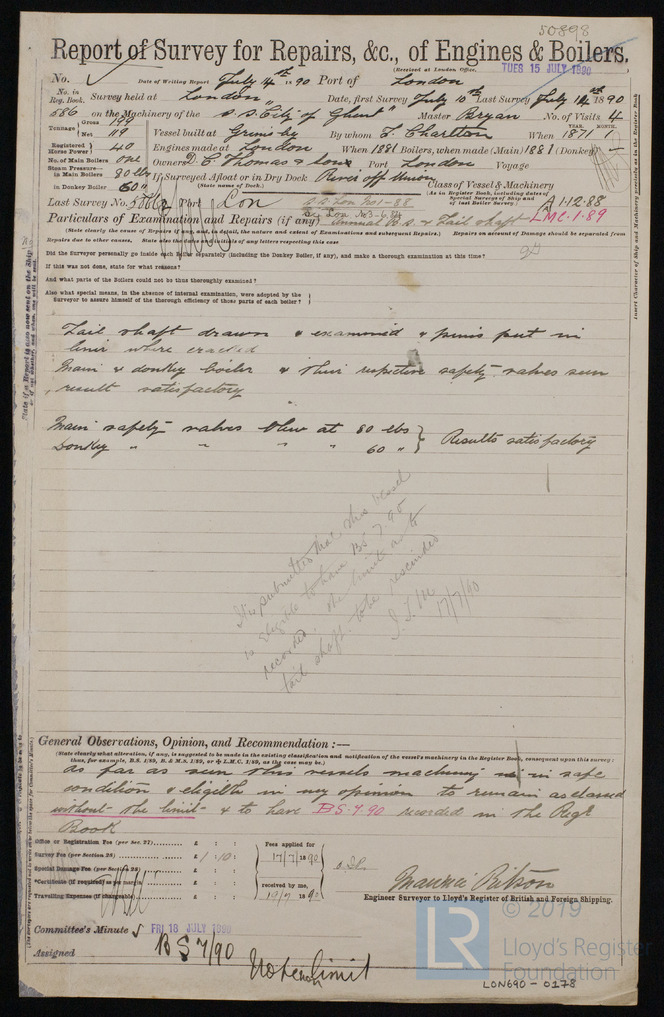 50898
Report of Survey for Repairs, &c., of Engines & Boilers.
(Received at London Office,
TUES 15 JULY 1890
No. Date of Writing Report July 14th 90 Port of London
No. in Reg. Book. Survey held at London Date, first Survey July 10th Last Survey July 14th 1890
586 on the Machinery of the S.S. City of Ghent Master Bryan No. of Visits 4
Tonnage Gross 199 Net 119 Vessel built at Grimsby By whom T. Charlton When 1871 YEAR. MONTH.
Registered Horse Power 40 Engines made at London When 1881 Boilers, when made (Main) 1881 (Donkey)
No. of Main Boilers one Owners D. C. Thomas & Sons Port London Voyage
Steam Pressure in Main Boilers 80 lbs If Surveyed Afloat or in Dry Dock River off Union
in Donkey Boiler 60 " (State name of Dock.) Class of Vessel & Machinery
(As in Register Book, including dates of Special Surveys of Ship and of last Boiler Survey)
Last Survey No. Port Lon S.S. Lon No1-88 A 1.12.88
LMC. 1.89
Particulars of Examination and Repairs (if any) Annual B.S. & Tail shaft
(State clearly the cause of Repairs if any and, in detail, the nature and extent of Examinations and subsequent Repairs.) Repairs on account of Damage should be separated from
Repairs due to other causes. State also the dates and initials of any letters respecting this case
Did the Surveyor personally go inside each Boiler separately (including the Donkey Boiler, if any), and make a thorough examination at this time?
If this was not done, state for what reasons?
And what parts of the Boilers could not be thus thoroughly examined?
Also what special means, in the absence of internal examination, were adopted by the
Surveyor to assure himself of the thorough efficiency of those parts of each boiler?
Tail shaft drawn & examined & pins put in
liner where cracked
Main & donkey boiler & their respective safety valves seen
result satisfactory
Main safety valves blew at 80 lbs
Donkey " " " " 60 " Results satisfactory
It is submitted that this vessel
is eligible to have BS 7.90
recorded. The limit as to
tail shaft to be rescinded
17/7/90
General Observations, Opinion, and Recommendation :—
(State clearly what alteration, if any, is suggested to be made in the existing classification and notification of the vessel's machinery in the Register Book, consequent upon this survey;
thus, for example, B.S. 1/89, B. & M.S. 1/89, or L.M.C. 1/89, as the case may be.)
As far as seen this vessels machinery is in safe
condition & eligible in my opinion to remain as classed
without the limit & to have BS.7.90 recorded in the Regr
Book
Office or Registration Fee (per Sec. 27) £ : : Fees applied for
Survey Fee (per Section 28) £ 1 : 10 : 17/7/1890
Special Damage Fee (per Section 28) £ : :
*Certificate (if required) as per margin £ : : received by me,
Travelling Expenses (if chargeable) £ : : 19/7 1890
Maurice Ritson
Engineer Surveyor to Lloyd's Register of British and Foreign Shipping.
Committee's Minute FRI 18 JULY 1890
Assigned BS 7/90
No tenlimit
© 2019
LR
Lloyd's Register
Foundation
LON690-0178
Insert Character of Ship and Machinery precisely as in the Register Book